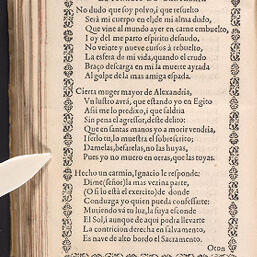 No dudo que soy polvo, i que resuelto
Será mi cuerpo en el, de mi alma dudo,
Que vine al mundo ayer en carne embuelto,
I oy del me parto espiritu desnudo,
No veinte y nueve cursos á rebuelto,
La esfera de mi vida, quando el crudo
Braço descarga en mi la muerte ayrada
Al golpe de la mas amiga espada.
Cierta muger mayor de Alexandria,
Vn lustro avrá, que estando yo en Egito
Assi me lo predixo, i que saldria
Sin pena el agressor, deste delito:
Que en santas manos yo a morir vendria,
I serlo tu, lo muestra el sobrescrito;
Damelas, besarelas, no las huyas,
Pues yo no muero en otras, que las tuyas.
Hecho un carmin, Ignacio le responde:
Dime (señor) la mas vezina parte,
(O si lo está el exercito) de donde
Condurga yo quien pueda confessarte:
Muriendo vá tu luz, la suya esconde
El Sol, i aunque de aqui podra llevarte
La contricion derecha en salvamento,
Es nave de alto bordo el Sacramento.
Oton